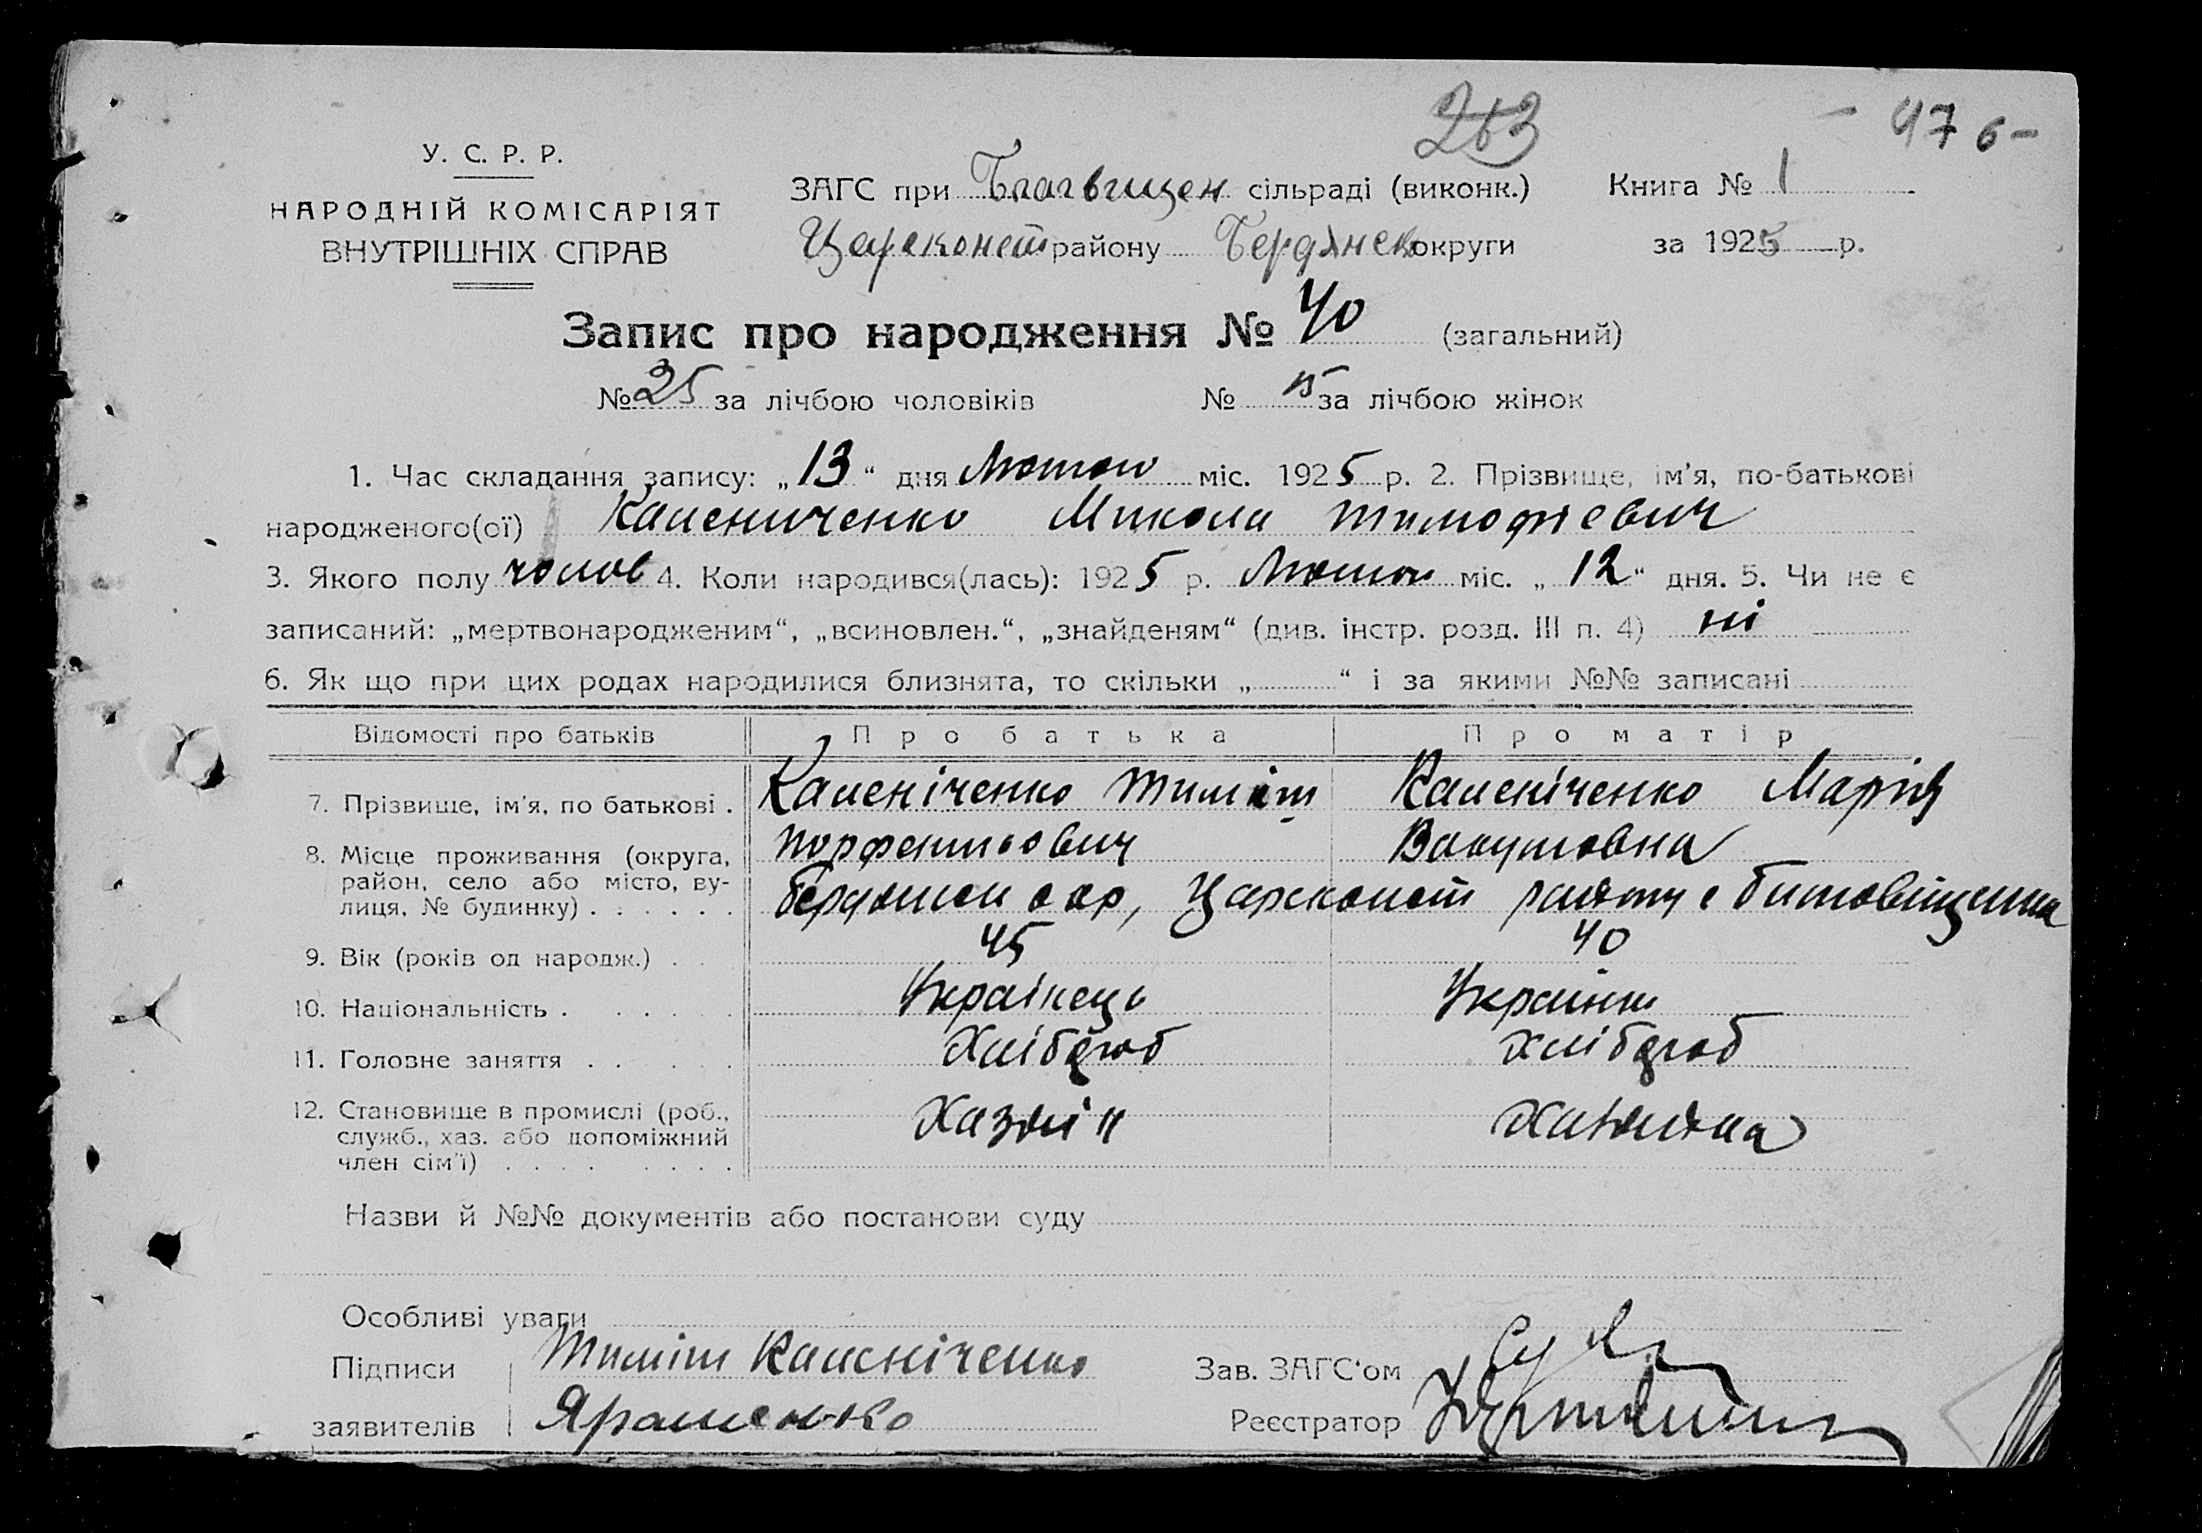 263
- 47 б -
У. С. Р. Р.
НАРОДНІЙ КОМІСАРІЯТ
ВНУТРІШНІХ СПРАВ
ЗАГС при Благвищен сільраді (виконк.) Книга № 1
Царсконст району Бердянсь округи за 1925 р.
Запис про народження № 40 (загальний)
№ 25 за лічбою чоловіків № 15 за лічбою жінок
1. Час складання запису: „13“ дня Лютого міс. 1925 р. 2. Прізвище, ім'я, по-батькові
народженого(ої) Камениченко Микола Тимофієвич
3. Якого полу чолов 4. Коли народився(лась): 1925 р. Лютого міс. „12“ дня. 5. Чи не є
записаний: „мертвонародженим“, „всиновлен.“, „знайденям“ (див. інстр. розд. III п. 4) ні
6. Як що при цих родах народилися близнята, то скільки „ “ і за якими №№ записані
Відомості про батьків Про батька Про матір
7. Прізвище, ім'я, по батькові . Каменіченко Тиміш Каменіченко Марія
Порфентьович
8. Місце проживання (округа,
район, село або місто, ву-
лиця, № будинку) . . . . . . окр, Царсконст району с
9. Вік (років од народж.) . . 45 40
10. Національність . . . . . . Українець Українка
11. Головне заняття . . . . . Хлібороб Хлібороб
12. Становище в промислі (роб.,
служб., хаз. або допоміжний
член сім'ї) . . . . . . . . . Хазяїн Хазяйка
Назви й №№ документів або постанови суду
Особливі уваги
Підписи Тиміш Каменіченко Зав. ЗАГС'ом
заявителів Ярошенко Реєстратор